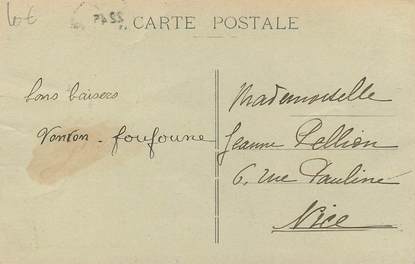 10€
PASS
CARTE POSTALE
bons baisers
Tonton - foufoune
Mademoiselle
Jeanne Pellion
6, rue Pauline
Nice